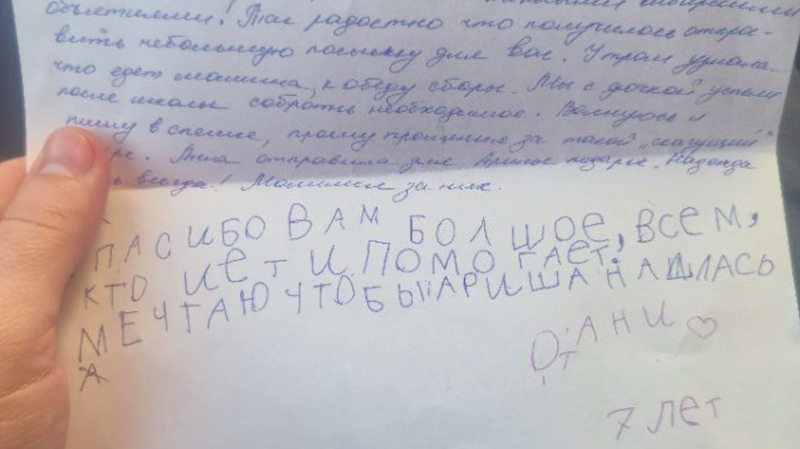 объятиями! Так радостно что получилось отпра-
вить небольшую посылку для вас. Утром узнала
что едет машина, к обеду сборы. Мы с дочкой успели
после школы собрать необходимое. Волнуюсь и
пишу в спешке, прошу прощения за такой „скачущий"
Аня отправила для Ариши подарок. Надежда
всегда! Молимся за них.
ПАСИБО ВАМ БОЛШОЕ, ВСЕМ,
КТО ИЕТ И ПОМОГАЕТ.
МЕЧТАЮ ЧТОБЫ АРИША НАШЛАСЬ
ОТ АНИ
7 ЛЕТ